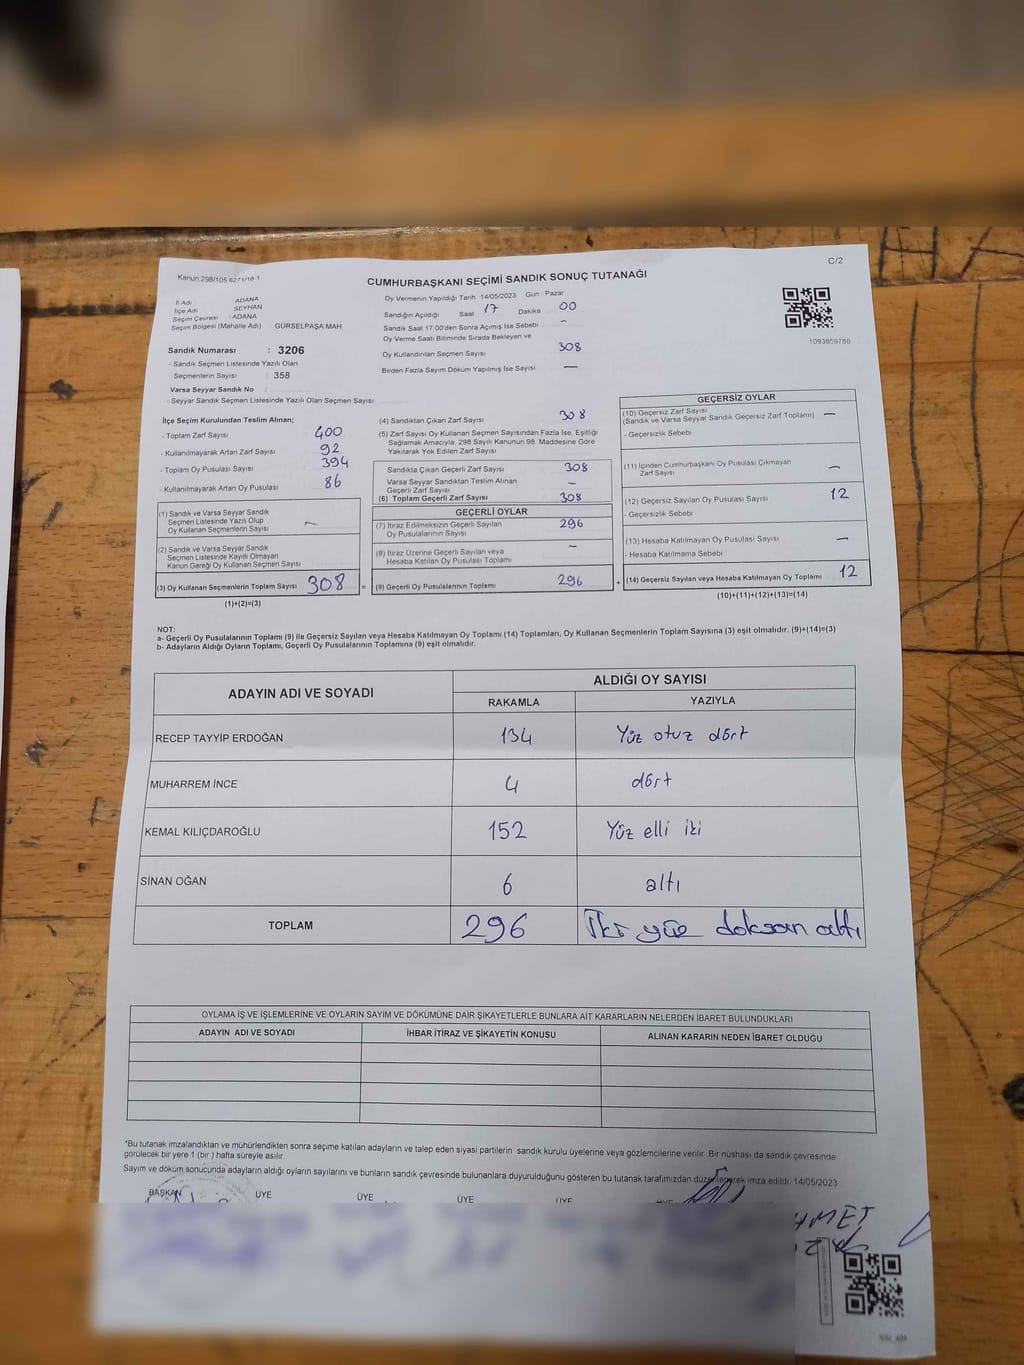 Kanun:298/105 6271/18-1
C/2
CUMHURBAŞKANI SEÇİMİ SANDIK SONUÇ TUTANAĞI
İl Adı ADANA
İlçe Adı SEYHAN
Seçim Çevresi : ADANA
Seçim Bölgesi (Mahalle Adı) GÜRSELPAŞA MAH
Sandık Numarası : 3206
- Sandık Seçmen Listesinde Yazılı Olan
Seçmenlerin Sayısı : 358
Varsa Seyyar Sandık No :
- Seyyar Sandık Seçmen Listesinde Yazılı Olan Seçmen Sayısı
Oy Vermenin Yapıldığı Tarih 14/05/2023 Gün : Pazar
Sandığın Açıldığı Saat 17 Dakika 00
Sandık Saat 17:00'den Sonra Açımış İse Sebebi –
Oy Verme Saati Bitiminde Sırada Bekleyen ve
Oy Kullandırılan Seçmen Sayısı 308
Birden Fazla Sayım Döküm Yapılmış İse Sayısı —
1093859788
İlçe Seçim Kurulundan Teslim Alınan;
- Toplam Zarf Sayısı 400
- Kullanılmayarak Artan Zarf Sayısı 92
- Toplam Oy Pusulası Sayısı 394
- Kullanılmayarak Artan Oy Pusulası 86
(1) Sandık ve Varsa Seyyar Sandık
Seçmen Listesinde Yazılı Olup
Oy Kullanan Seçmenlerin Sayısı –
(2) Sandık ve Varsa Seyyar Sandık
Seçmen Listesinde Kayıtlı Olmayan
Kanun Gereği Oy Kullanan Seçmen Sayısı
(3) Oy Kullanan Seçmenlerin Toplam Sayısı 308 =
(1)+(2)=(3)
(4) Sandıktan Çıkan Zarf Sayısı 308
(5) Zarf Sayısı Oy Kullanan Seçmen Sayısından Fazla İse, Eşitliği
Sağlamak Amacıyla, 298 Sayılı Kanunun 98. Maddesine Göre
Yakılarak Yok Edilen Zarf Sayısı
Sandıkta Çıkan Geçerli Zarf Sayısı 308
Varsa Seyyar Sandıktan Teslim Alınan
Geçerli Zarf Sayısı –
(6) Toplam Geçerli Zarf Sayısı 308
GEÇERLİ OYLAR
(7) İtiraz Edilmeksizin Geçerli Sayılan
Oy Pusulalarının Sayısı 296
(8) İtiraz Üzerine Geçerli Sayılan veya
Hesaba Katılan Oy Pusulası Toplamı –
(9) Geçerli Oy Pusulalarının Toplamı 296 +
GEÇERSİZ OYLAR
(10) Geçersiz Zarf Sayısı
(Sandık ve Varsa Seyyar Sandık Geçersiz Zarf Toplamı) –
- Geçersizlik Sebebi
(11) İçinden Cumhurbaşkanı Oy Pusulası Çıkmayan
Zarf Sayısı –
(12) Geçersiz Sayılan Oy Pusulası Sayısı 12
- Geçersizlik Sebebi
(13) Hesaba Katılmayan Oy Pusulası Sayısı –
- Hesaba Katılmama Sebebi
(14) Geçersiz Sayılan veya Hesaba Katılmayan Oy Toplamı 12
(10)+(11)+(12)+(13)=(14)
NOT:
a- Geçerli Oy Pusulalarının Toplamı (9) ile Geçersiz Sayılan veya Hesaba Katılmayan Oy Toplamı (14) Toplamları, Oy Kullanan Seçmenlerin Toplam Sayısına (3) eşit olmalıdır. (9)+(14)=(3)
b- Adayların Aldığı Oyların Toplamı, Geçerli Oy Pusulalarının Toplamına (9) eşit olmalıdır.
ADAYIN ADI VE SOYADI
ALDIĞI OY SAYISI
RAKAMLA YAZIYLA
RECEP TAYYİP ERDOĞAN 134 Yüz otuz dört
MUHARREM İNCE 4 dört
KEMAL KILIÇDAROĞLU 152 Yüz elli iki
SİNAN OĞAN 6 altı
TOPLAM 296 İki yüz doksan altı
OYLAMA İŞ VE İŞLEMLERİNE VE OYLARIN SAYIM VE DÖKÜMÜNE DAİR ŞİKAYETLERLE BUNLARA AİT KARARLARIN NELERDEN İBARET BULUNDUKLARI
ADAYIN ADI VE SOYADI İHBAR İTİRAZ VE ŞİKAYETİN KONUSU ALINAN KARARIN NEDEN İBARET OLDUĞU
*Bu tutanak imzalandıktan ve mühürlendikten sonra seçime katılan adayların ve talep eden siyasi partilerin sandık kurulu üyelerine veya gözlemcilerine verilir. Bir nüshası da sandık çevresinde
görülecek bir yere 1 (bir) hafta süreyle asılır.
Sayım ve döküm sonucunda adayların aldığı oyların sayılarını ve bunların sandık çevresinde bulunanlara duyurulduğunu gösteren bu tutanak tarafımızdan düzenlenerek imza edildi. 14/05/2023
BAŞKAN ÜYE ÜYE ÜYE ÜYE